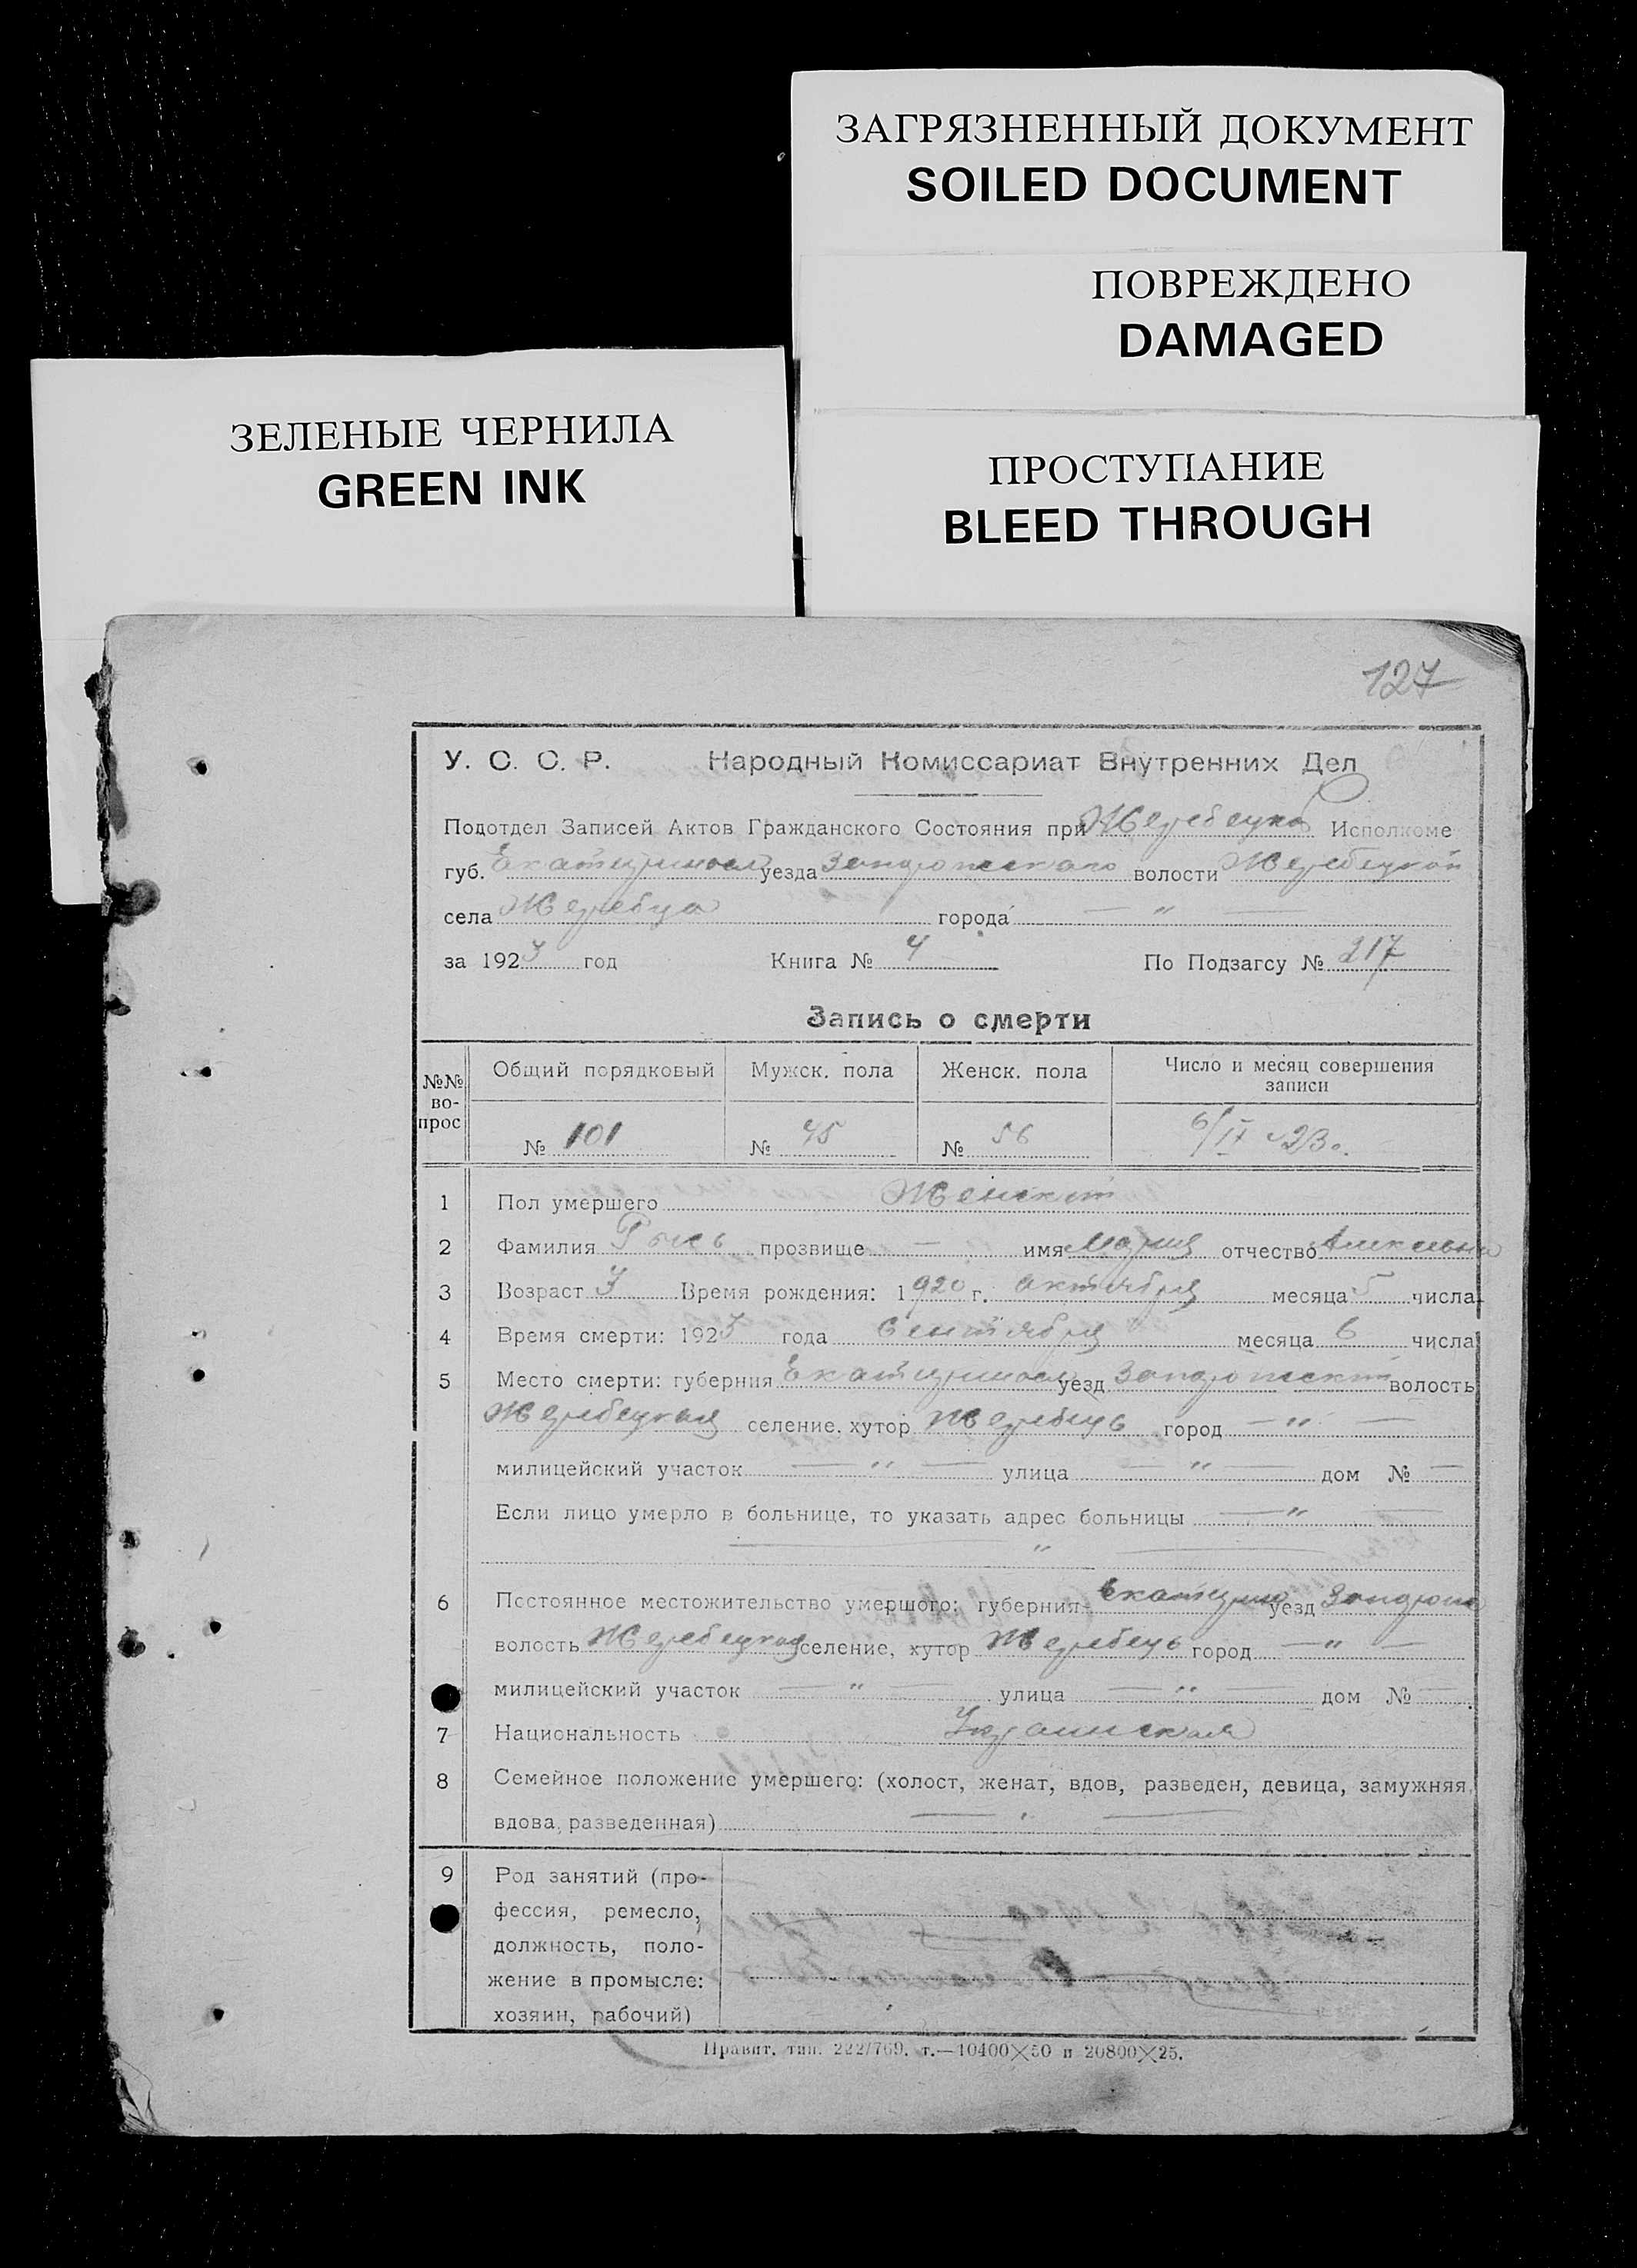 ЗАГРЯЗНЕННЫЙ ДОКУМЕНТ
SOILED DOCUMENT
ПОВРЕЖДЕНО
DAMAGED
ЗЕЛЕНЫЕ ЧЕРНИЛА
GREEN INK
ПРОСТУПАНИЕ
BLEED THROUGH
127
У. С. С. Р. Народный Комиссариат Внутренних Дел
Подотдел Записей Актов Гражданского Состояния при Исполкоме
губ. Екатеринослав уезда Запорожского волости Жеребецкой
села Жеребца города — „ —
за 1923 год Книга № 4 По Подзагсу № 217
Запись о смерти
№№ во-прос Общий порядковый Мужск. пола Женск. пола Число и месяц совершения записи
№ 101 № 45 № 56 6/IX 23 г.
1 Пол умершего Женский
2 Фамилия Рысь прозвище — имя Мария отчество Алексеевна
3 Возраст 3 Время рождения: 1920 г. октября месяца 5 числа
4 Время смерти: 1923 года Сентября месяца 6 числа
5 Место смерти: губерния Екатеринослав уезд Запорожский волость
Жеребецкая селение, хутор Жеребець город — „ —
милицейский участок — „ — улица — „ — дом № —
Если лицо умерло в больнице, то указать адрес больницы — „ —
— „ —
6 Постоянное местожительство умершого: губерния Екатерино уезд Запорож
волость Жеребецкая селение, хутор Жеребець город — „ —
милицейский участок — „ — улица — „ — дом № —
7 Национальность Украинская
8 Семейное положение умершего: (холост, женат, вдов, разведен, девица, замужняя,
вдова, разведенная) — „ —
9 Род занятий (про-
фессия, ремесло,
должность, поло-
жение в промысле:
хозяин, рабочий)
Правит. тип. 222/769. т.—10400×50 и 20800×25.